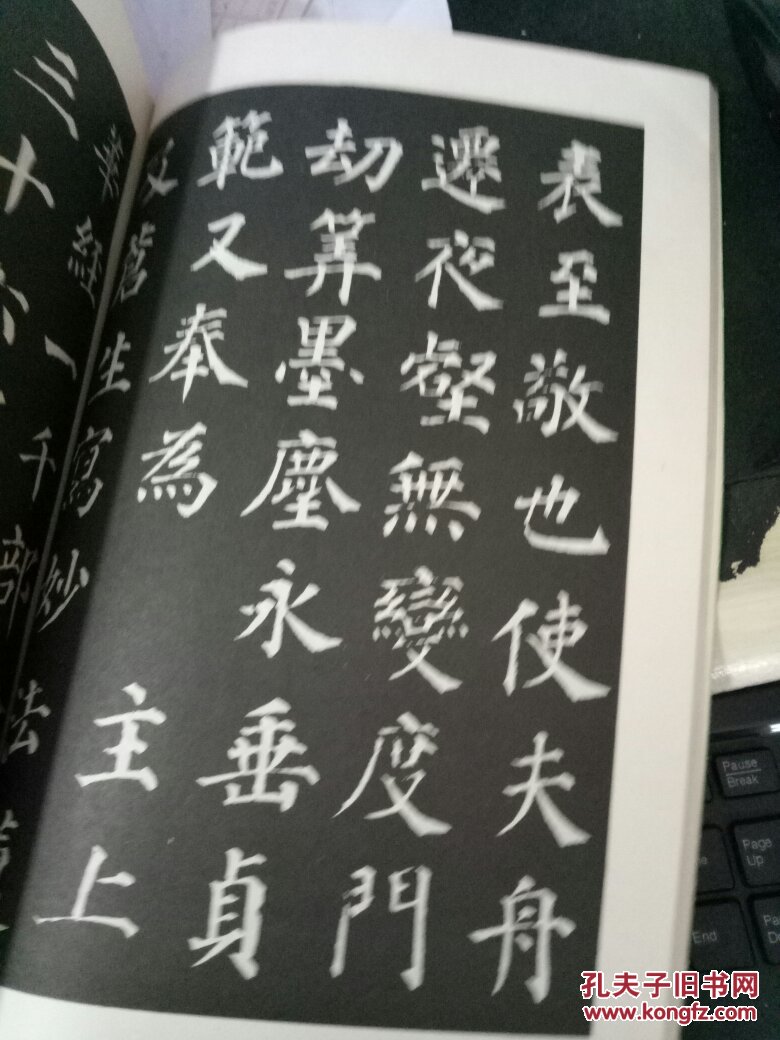 表至敬也使夫舟
遷夜壑無變度門
劫筭墨塵永垂貞
範又奉為 主上
及蒼生寫妙法
華經一千部
三十六
Pause
Break
Page
Up
End
孔夫子旧书网
www.kongfz.com